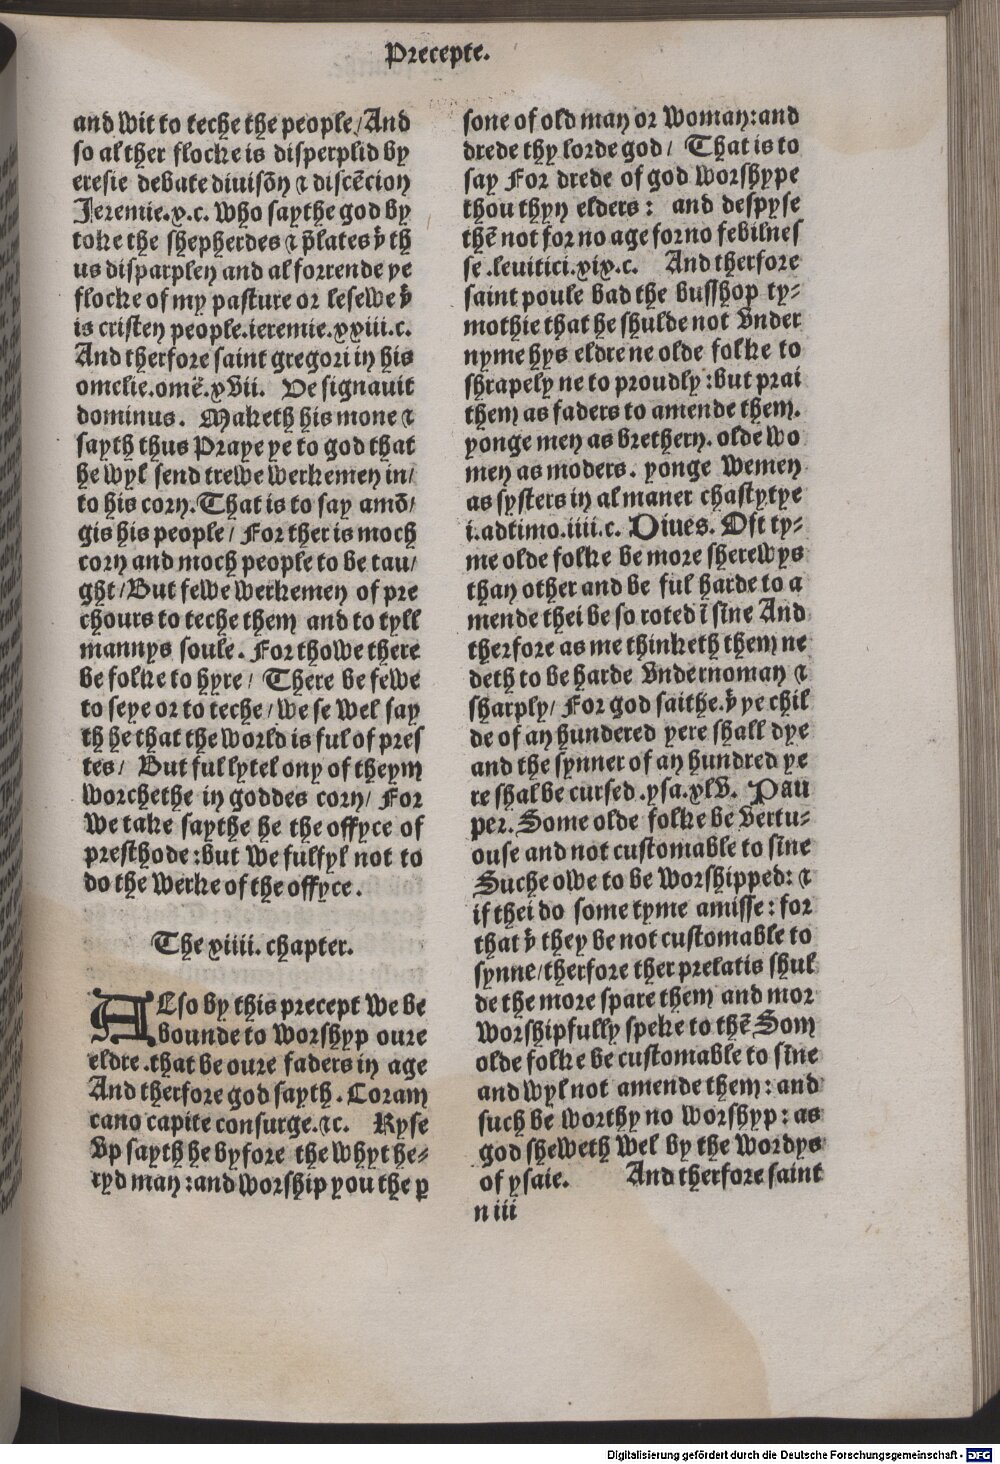 Precepte.
and wit to teche the people/And
so al ther flocke is disperplid by
eresie debate diuisōn ⁊ discēcion
Jeremie.x.c. Who saythe god by
toke the shepherdes ⁊ p̄lates þͭ th
us disparplen and al forrende ye
flocke of my pasture or lesewe þͭ
is cristen people.ieremie.xxiii.c.
And therfore saint gregori in his
omelie.omē.xvii. Designauit
dominus. Maketh his mone ⁊
sayth thus Praye ye to god that
he wyl send trewe werkemen in/
to his corn.That is to say amō/
gis his people/ For ther is moch
corn and moch people to be tau/
ght/But fewe werkemen of pre
chours to teche them and to tyll
mannys soule. For thowe there
be folke to hyre/ There be fewe
to seye or to teche/we se wel say
th he that the world is ful of pres
tes/ But ful lytel ony of theym
worchethe in goddes corn/ For
we take saythe he the offyce of
presthode:but we fulfyl not to
do the werke of the offyce.
The xiiii. chapter.
ALso by this precept we be
bounde to worshyp oure
eldre.that be oure faders in age
And therfore god sayth. Coram
cano capite consurge.⁊c. Ryse
vp sayth he byfore the whyt he-
ryd man:and worship you the p
sone of old man or woman:and
drede thy lorde god/ That is to
say For drede of god worshype
thou thyn elders: and despyse
thē not for no age for no febilnes
se.leuitici.xix.c. And therfore
saint poule bad the busshop ty-
mothie that he shulde not vnder
nyme hys eldre ne olde folke to
shrapely ne to proudly:but prai
them as faders to amende them.
yonge men as brethern. olde wo
men as moders. yonge wemen
as systers in al maner chastytye
i.adtimo.iiii.c. Diues. Oft ty-
me olde folke be more sherewys
than other and be ful harde to a
mende thei be so roted ī sīne And
therfore as me thinketh them ne
deth to be harde vndernoman ⁊
sharply/ For god saithe.þͭ ye chil
de of an hundered yere shall dye
and the synner of an hundred ye
re shal be cursed.ysa.xlv. Pau
per. Some olde folke be vertu-
ouse and not customable to sīne
Suche owe to be worshipped: ⁊
if thei do some tyme amisse: for
that þͭ they be not customable to
synne/therfore ther prelatis shul
de the more spare them and mor
worshipfully speke to thē Som
olde folke be customable to sīne
and wyl not amende them: and
such be worthy no worshyp: as
god sheweth wel by the wordys
of ysaie. And therfore saint
n iii
Digitalisierung gefördert durch die Deutsche Forschungsgemeinschaft - DFG